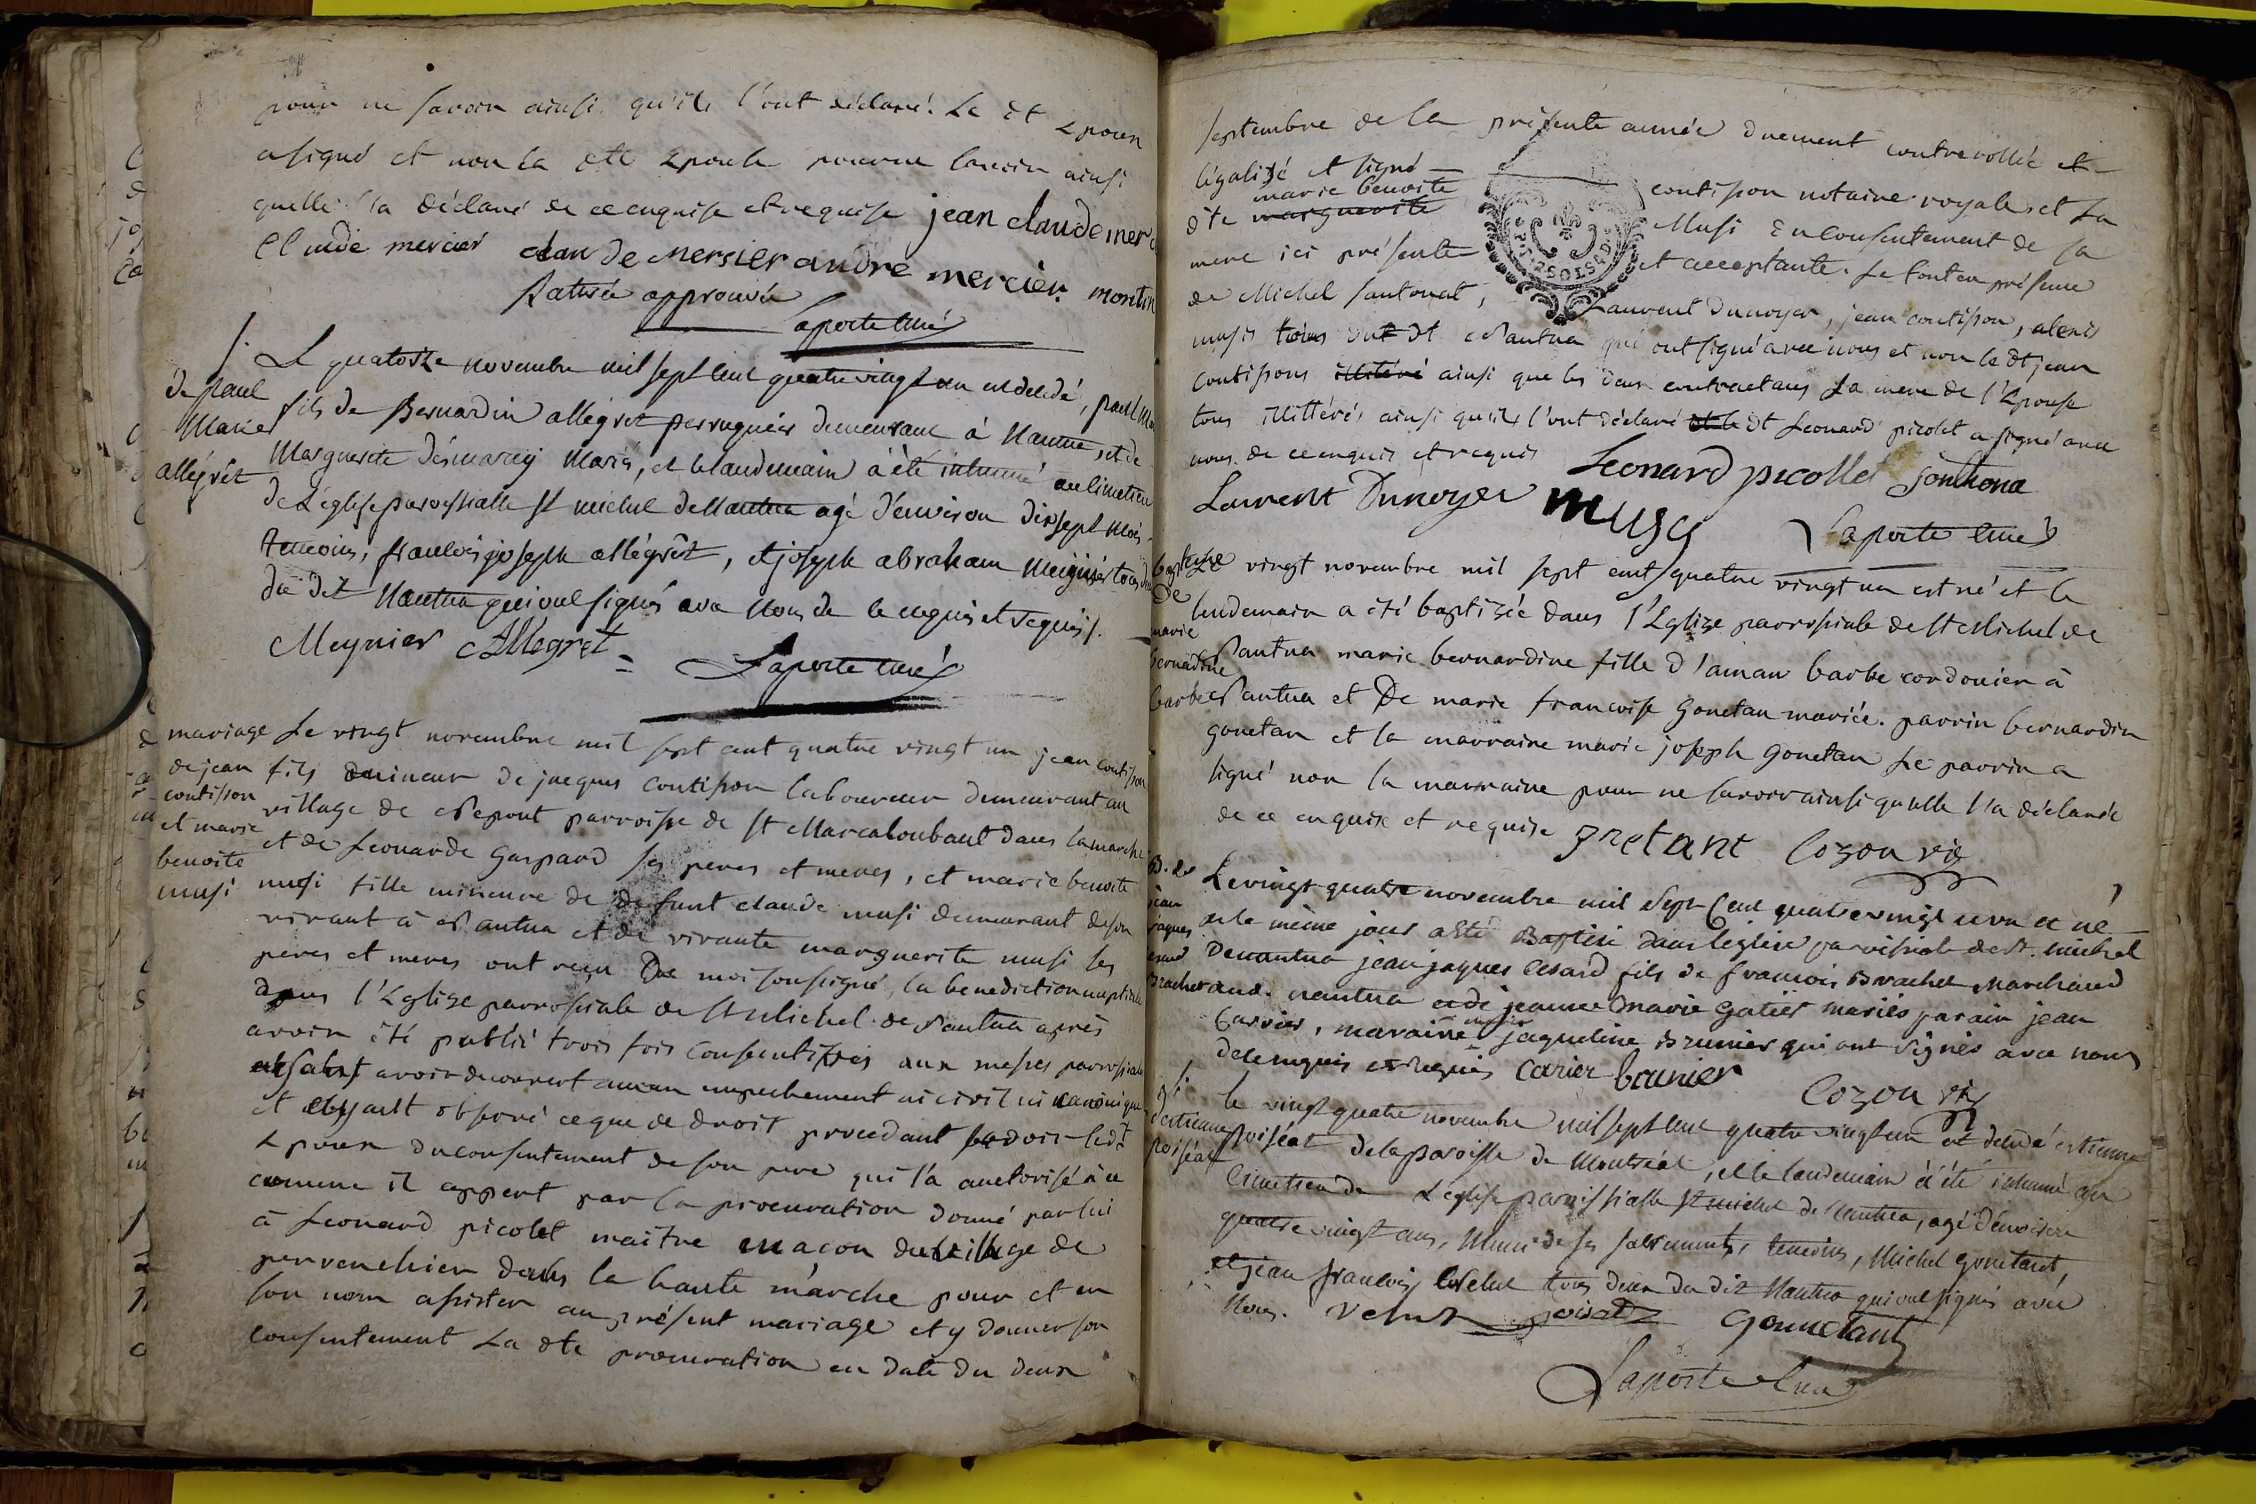 pour ne savoir ainsi qu'ils l'ont déclaré. Le dt Epoux
a signé et non la dte Epouse pour ne savoir ainsi
quelle l'a déclaré de ce enquise et requise jean claude mer
Claude mercier claude mersier andré mercier montin
Rature approuvée
Laporte curé
S.
de paul
Marie
allégrêt
Le quatorze novembre mil sept cent quatre vingt un est décédé, paul M
fils de Bernardin allégret perruquier demeurant à Nantua, et de
Marguerite désmaray Mariés, et le landemain à été inhumé au cimetiere
de L'église paroissialle st michel de Nantua agé d'environ dixsept mois
temoins, francois joseph allégrêt, et joseph abraham Meÿnier tous deux
du dit Nantua qui ont signés avec Nous de ce enquis et requis.
Meynier Allegret
Laporte curé
mariage
de jean
contisson
et marie
benoite
musi
Le vingt novembre mil sept cent quatre vingt un jean contisson
fils mineur de jacques contisson laboureur demeurant au
village de Nepont parroisse de st Marcaloubaut dans la marche
et de Leonarde Gaspard ses peres et meres, et marie benoite
musi fille mineure de defunt claude musi demeurant de son
vivant à Nantua et de vivante marguerite musi ses
peres et meres ont reçu De moi soussigné, la benediction nuptiale
dans l'Eglise parrossiale de st Michel de Nantua après
avoir été publié trois fois consecutives aux messes parrossiales
et sans avoir decouvert aucun empechement ni civil ni canonique
et observé ce que de droit procedant savoir ledt
Epoux du consentement de son pere qui l'a auctorisé à ce
comme il appert par la procuration donné par lui
à Leonard picolet maitre maçon du village de
pervenchier dans la haute marche pour et en
son nom assister au présent mariage et y donner son
consentement La dte procuration en date du deux
septembre de la présente année duement controllée et
légalisé et signé contisson notaire royale, et La
dte marie benoite marguerite Musi Du Consentement de sa
mere ici présente et acceptante. Le tout en présence
de Michel santonat, Laurent Dunoyer, jean contisson, alexis
musi tous dt Nantua qui ont signé avec nous et non le dt jean
Contissons illitéré ainsi que les deux contractans La mere de l'Epouse
tous illittérés ainsi qu'ils l'ont déclaré et le dt Leonard picolet a signé avec
nous de ce enquis et requis Leonard picollet sontona
Laurent Dunoyer musy Laporte curé
baptesme
De
marie
bernadine
barbe
Le vingt novembre mil sept cent quatre vingt un est né et le
lendemain a été baptisée dans l'Eglise parrossiale de st Michel de
Nantua marie bernardine fille d'aman barbe cordonier à
Nantua et De marie francoise Gonetan mariés. parrin bernardin
gonetan et la marraine marie joseph Gonetan Le parrin a
signé non la marraine pour ne savoir ainsi qu'elle l'a déclarée
de ce enquise et requise Gnetant Cozon vic
B. de
jean
jaques
Cesard
Brachet
Le vingt quatre novembre mil Sept Cent quatre vingt un et né
et le même jour a Eté Baptisé dans leglise parrissiale de st. michel
De nantua jean jaques Cesard fils de francois Brachet Marchand
aud. nantua et de jeanne marie Gatier mariés parain jean
Carrier, maraine marie jaqueline Brunier qui ont signés avec nous
de ce enquis et requis Carier brunier Cozon vic
S.
d'estienne
poiséat
le vingt quatre novembre mil sept cent quatre vingt un est decédé estienne
Poiséat de la paroisse de Montréal, et le landemain à été inhumé au
Cimetiere de L'église parroissialle st michel de Nantua, agé d'environ
quatre vingt ans, Muni de ses sacrements, temoins, Michel Gonetant,
et jean francois Velut tous deux du dit Nantua qui ont signés avec
Nous. Velut poisatz Gonnetant
Laporte curé